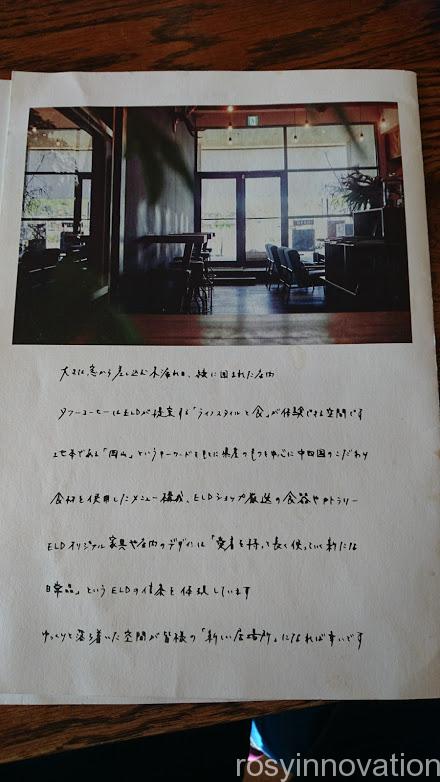 大きな窓から差し込む木漏れ日、緑に囲まれた店内
タフコーヒーはELDが提案する「ライフスタイルと食」が体験できる空間です
である「岡山」というキーワードをもとに県産のものを中心に中四国のこだわり
食材を使用したメニュー構成、ELDショップ厳選の食器やカトラリー
ELDオリジナル家具や店内のデザインは「愛着を持って長く使っていく新たな
日常品」というELDの信条を体現しています
ゆっくりと落ち着いた空間が皆様の「新しい居場所」になれば幸いです
rosyinnovation